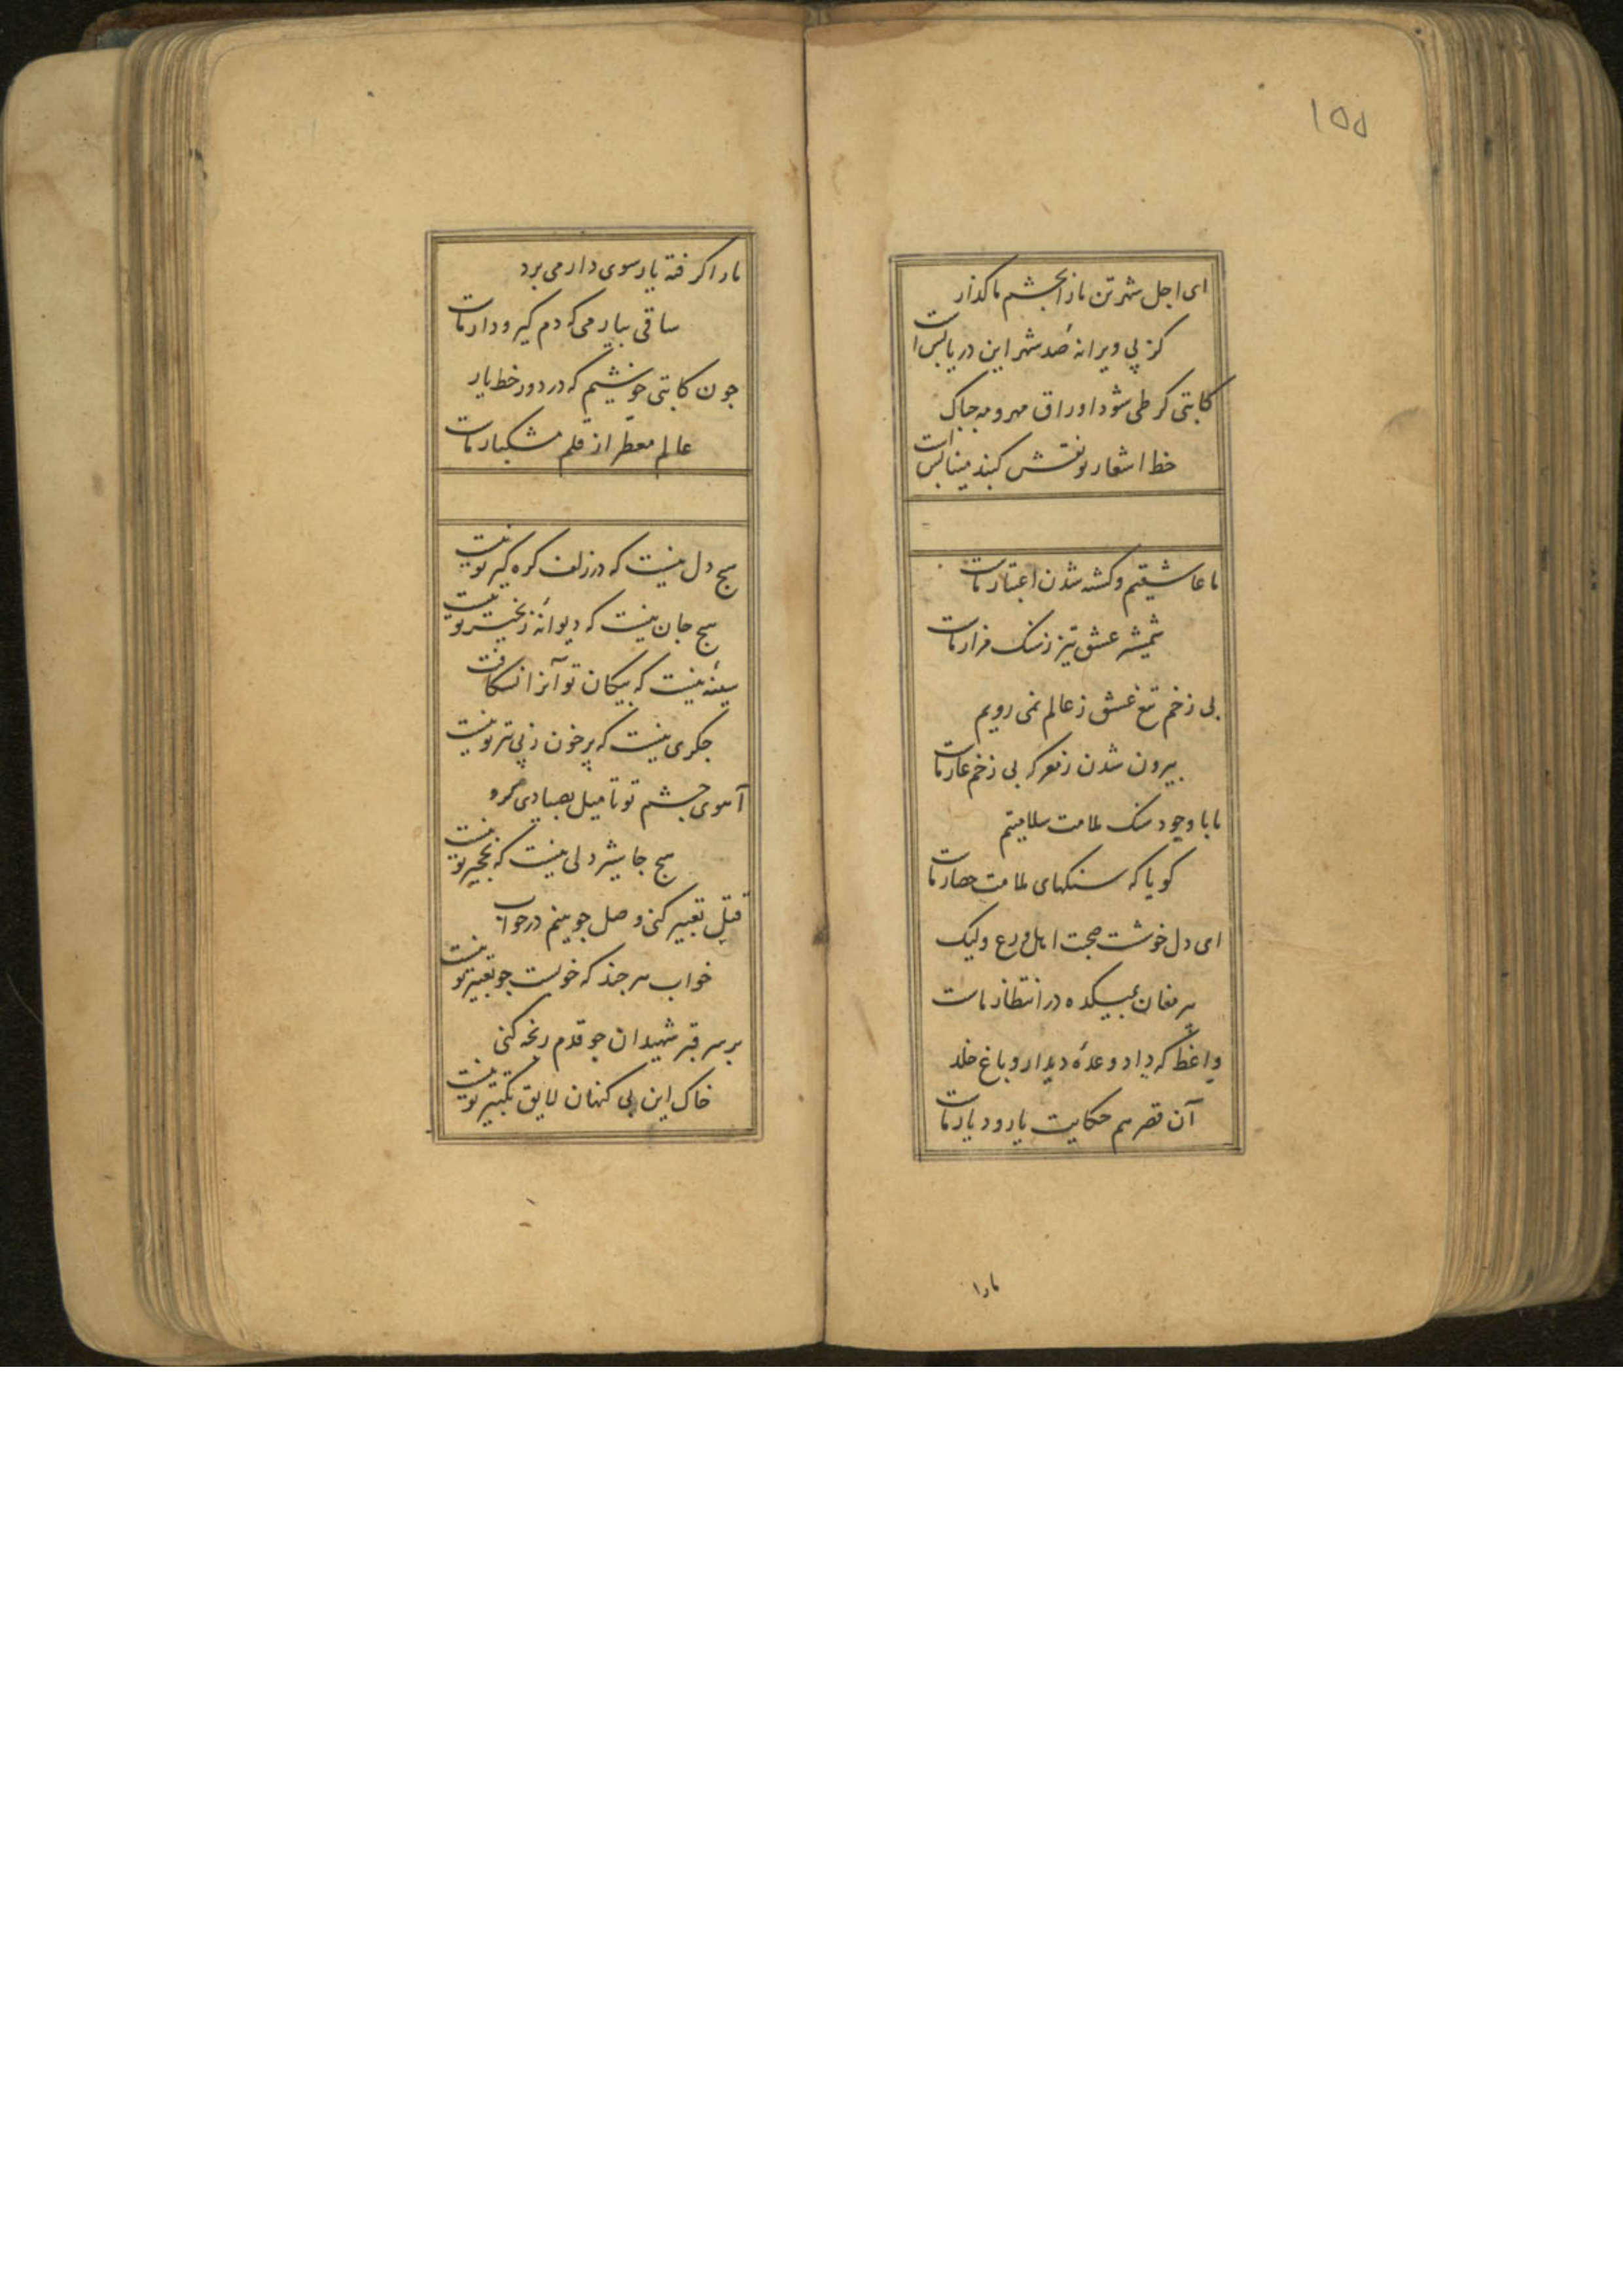 ۱۵۵
ای اجل شهر تن ما را بچشم ما کذار
کز پی ویرانه صد شهر این دریا بس است
کاتبی کر طی شود اوراق مهر و مه جه باک
خط اشعار تو نقش کنبد مینا بس است
ما عاشقیم و کشته شدن اعتبار ماست
شمشیر عشق تیز ز سنک مزار ماست
بی زخم تیغ عشق ز عالم نمی رویم
بیرون شدن ز معرکه بی زخم عار ماست
ما با وجود سنک ملامت سلامتیم
کویا که سنکهای ملامت حصار ماست
ای دل خوشست صحبت اهل ورع ولیک
پیر مغان بمیکده در انتظار ماست
واعظ که داد وعدهٔ دیدار و باغ خلد
آن قصه هم حکایت یار و دیار ماست
مارا
مارا کرفته یار سوی دار می برد
ساقی بیار می که دم کیر و دار ماست
جون کاتبی خوشیم که در دور خط یار
عالم معطر از قلم مشکبار ماست
هیج دل نیست که در زلف کره کیر تو نیست
هیج جان نیست که دیوانهٔ زنجیر تو نیست
سینهٔ نیست که پیکان تو آنرا نشکافت
جکری نیست که پر خون ز پی تیر تو نیست
آهوی جشم تو تا میل بصیادی کرد
هیج جا شیر دلی نیست که نخجیر تو نیست
قتل تعبیر کنی وصل جو بینم در خواب
خواب هر جند که خوبست جو تعبیر تو نیست
بر سر قبر شهیدان جو قدم رنجه کنی
خاک این بی کنهان لایق تکبیر تو نیست